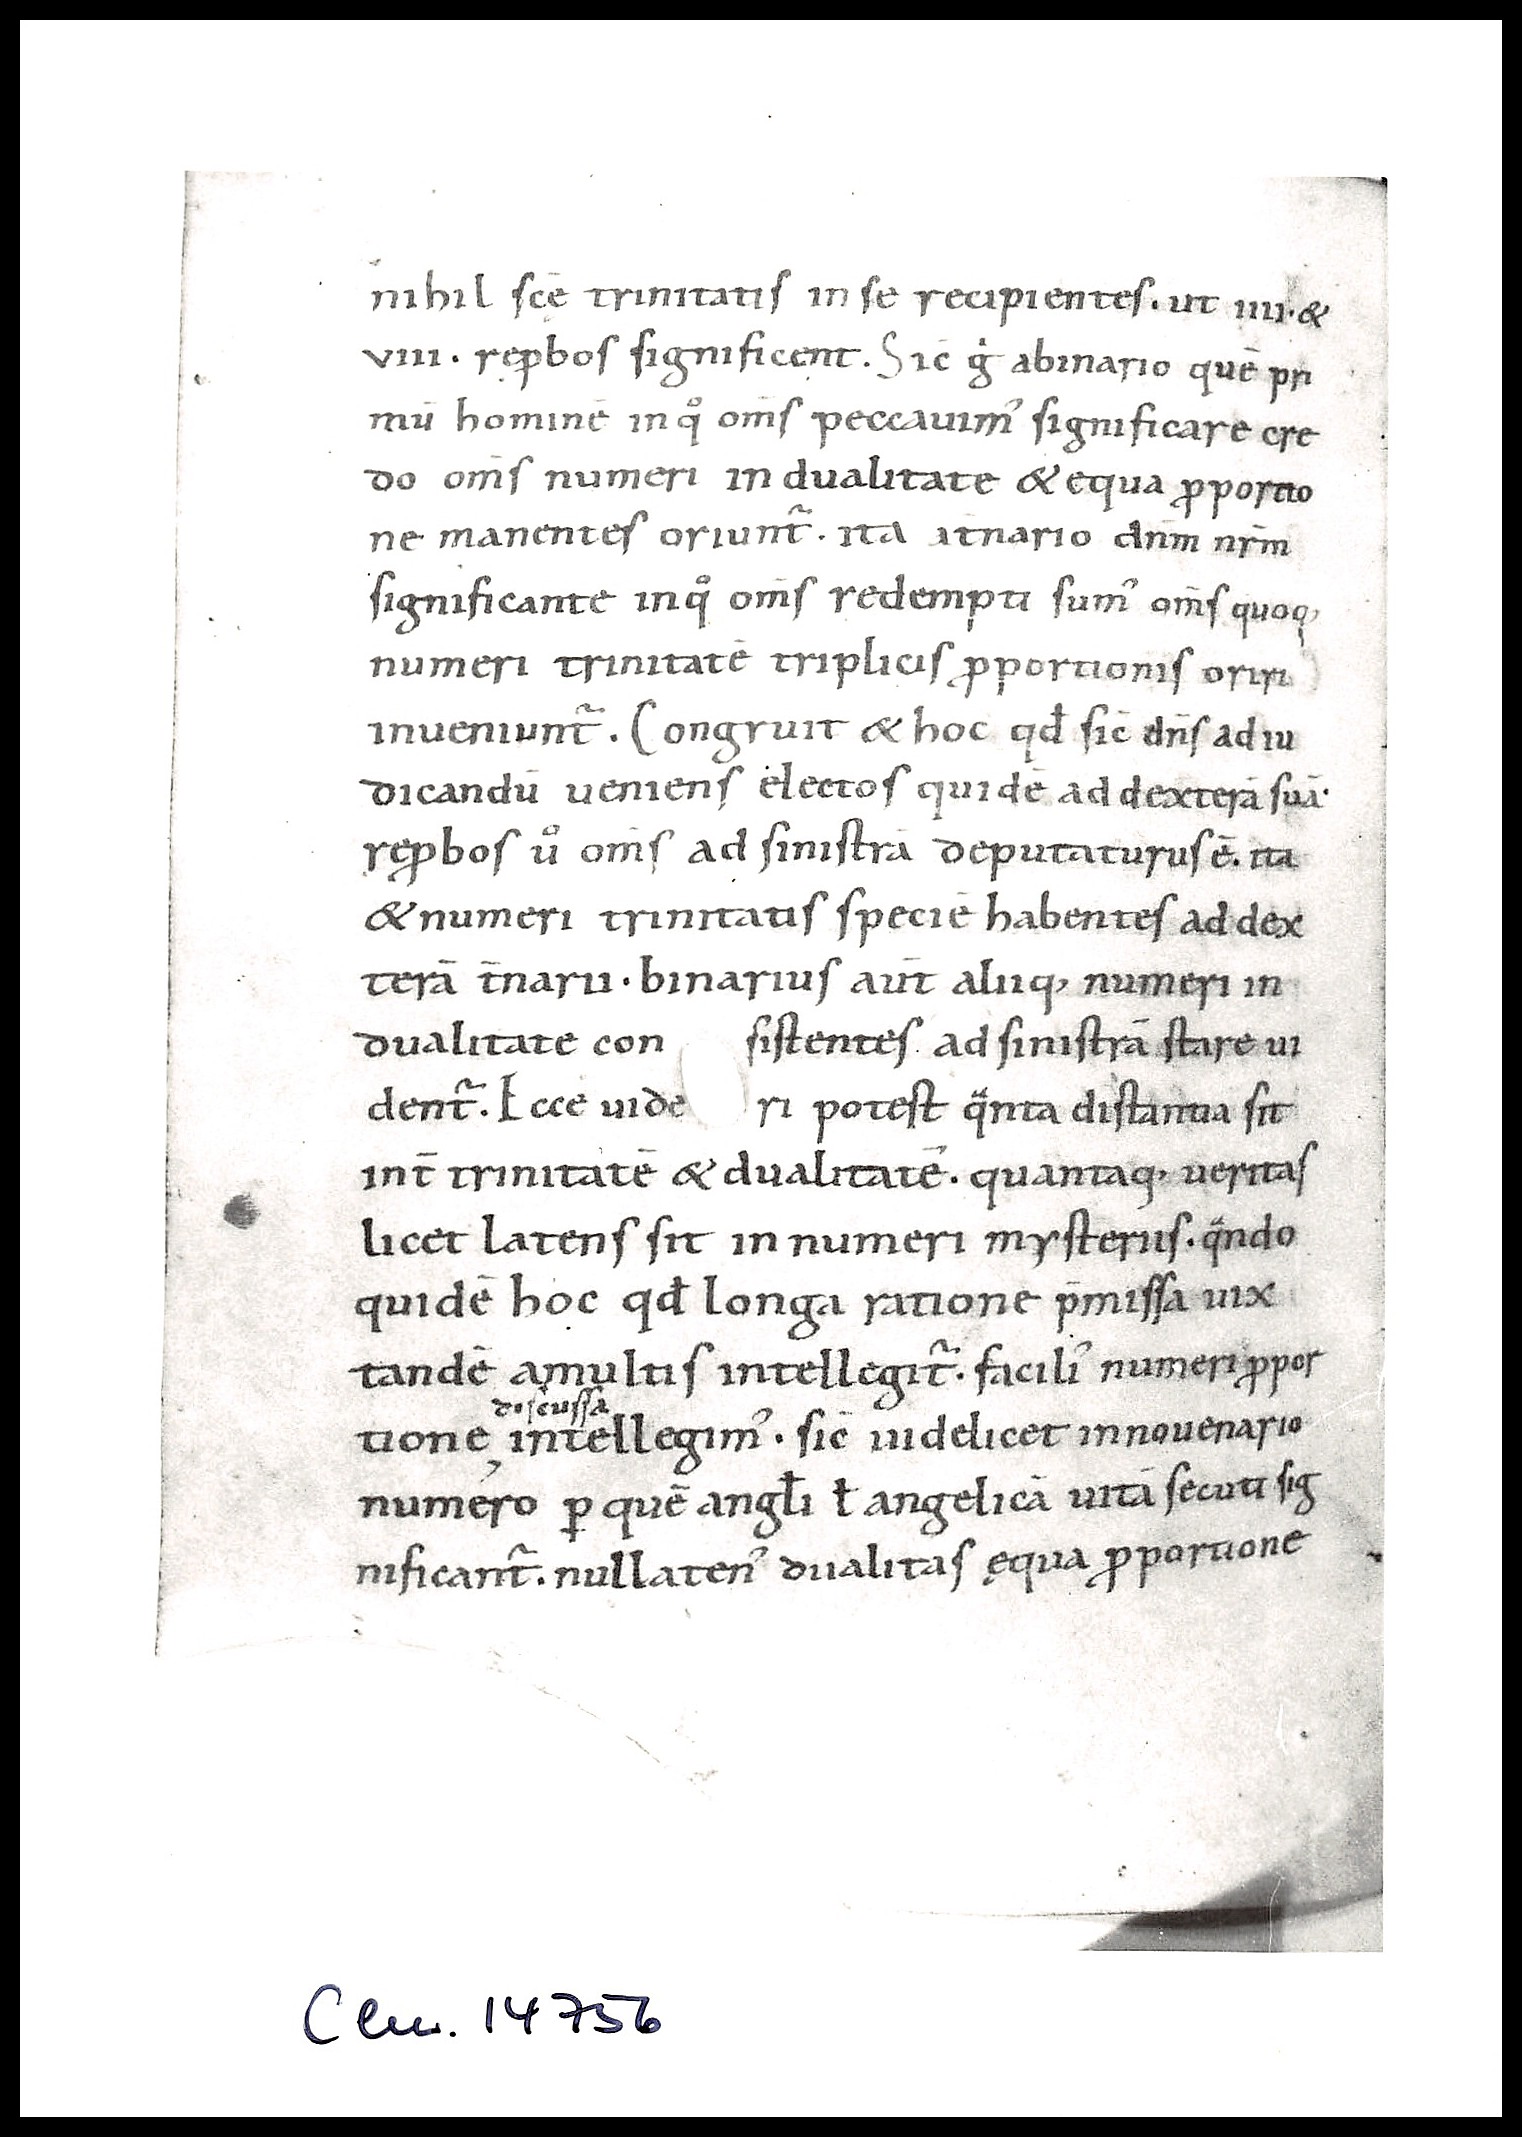 nihil scē trinitatis in se recipientes. ut iiii. &
viii. reꝓbos significent. Sic̄ gͥ abinario quē pri
mū hominē inqͦ om̄s peccauimꝰ significare cre
do om̄s numeri in dualitate & equa ꝓportio
ne manentes oriunt᷑. ita at̄nario dn̄m nr̄m
significante inqͦ om̄s redempti sumꝰ om̄s quoq;
numeri trinitatē triplicis ꝓportionis oriri
inueniunt᷑. Congruit & hoc qd̄ sic̄ dn̄s ad iu
dicandū ueniens electos quidē ad dexterā suā.
reꝓbos uͦ om̄s ad sinistrā deputaturus ē. ita
& numeri trinitatis speciē habentes ad dex
terā t̄narii. binarius aūt aliiq; numeri in
dualitate con sistentes ad sinistrā stare ui
dent᷑. Ecce uide ri potest qᷓnta distantia sit
int̄ trinitatē & dualitatē. quantaq; ueritas
licet latens sit in numeri mysteriis. qᷓndo
quidē hoc qd̄ longa ratione p̄missa uix
tandē amultis intellegit᷑. faciliꝰ numeri ꝓpor
discussa
tione, intellegimꝰ. sic̄ uidelicet innouenario
numero ꝑ quē angl̄i ł angelicā uitā secuti sig
nificant᷑. nullatenꝰ dualitas ęqua ꝓportione
Clm. 14756